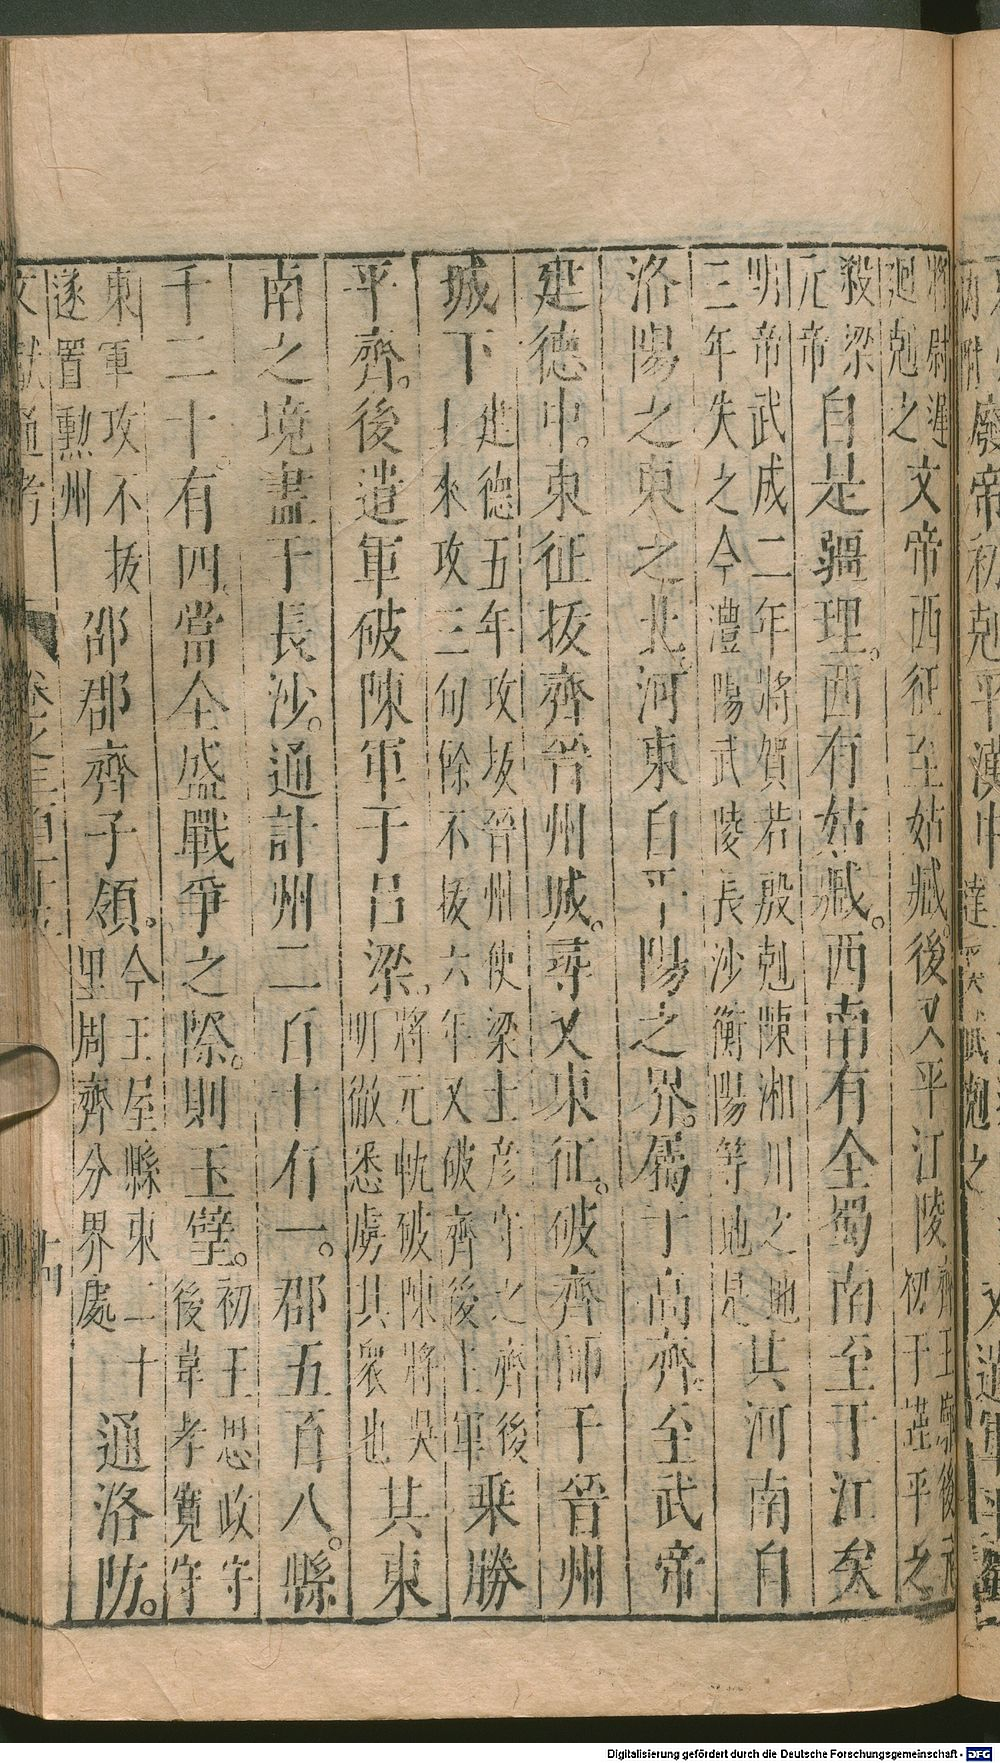 將尉遲
迥剋之
文帝西征至姑臧。後又平江陵
齊王廓後元
初于謹平之
殺梁
元帝
自是疆理。西有姑臧。西南有全蜀南至于江矣
明帝武成二年將賀若敦剋陳湘川之地
三年失之今澧陽武陵長沙衡陽等地是
其河南自
洛陽之東之北河東自平陽之界。屬于高齊。至武帝
建德中。東征拔齊晉州城。尋又東征。破齊師于晉州
城下
建德五年攻拔晉州使梁士彥守之齊後
主來攻三旬餘不拔六年又破齊後主軍
乘勝
平齊。後遣軍破陳軍于呂梁。
將元軌破陳將吳
明徹悉虜其衆也
其東
南之境盡于長沙。通計州二百十有一。郡五百八。縣
千二十。有四。當全盛戰爭之際。則玉壁。
初王思政守
後韋孝寬守
東軍攻不拔
遂置勲州
邵郡齊子嶺。
今王屋縣東二十
里周齊分界處
通洛防。
文獻通考
十四
廢帝初剋平漢中
又遣軍平蜀
Digitalisierung gefördert durch die Deutsche Forschungsgemeinschaft - DFG